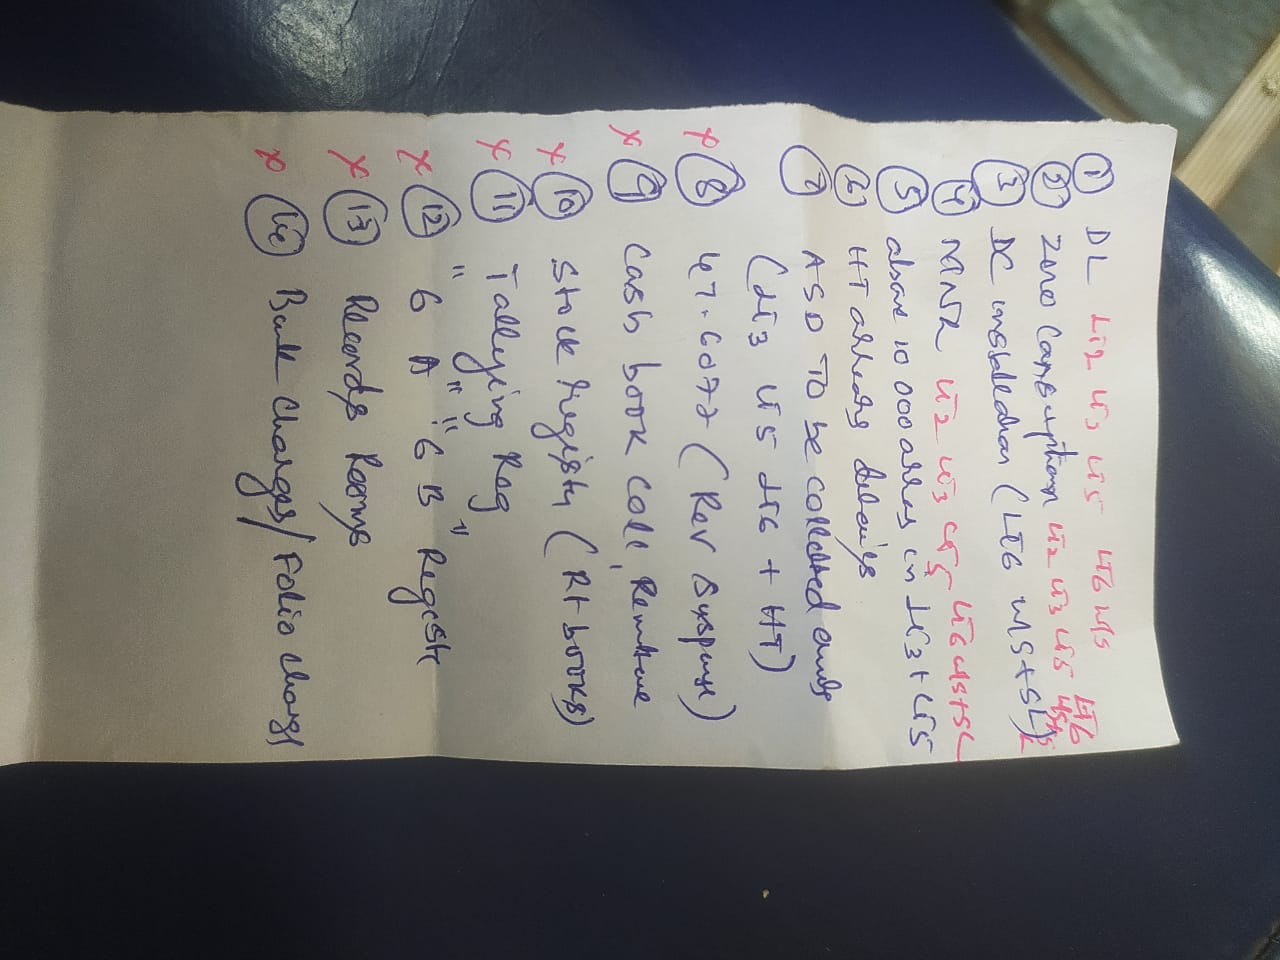 ① DL LT2 LT3 LT5 LT6 WS
② Zero Consumption LT2 LT3 LT5 LT6 WS+SL
③ DC installation (LT6 WS+SL)
④ MNR LT2 LT3 LT5 LT6 WS+SL
⑤ above 10 000 arres in LT3+LT5
⑥ HT arrears details
⑦ ASD To be collected
(LT3 LT5 LT6 + HT)
x ⑧ 47.607 (Rev Suspense)
x ⑨ Cash book Coll, Remttance
x ⑩ Stock Registr (Rt books)
x ⑪ Tallying Reg
" " " "
x ⑫ 6 A 6 B Regestr
x ⑬ Records Rooms
x Bank Charges/Folio Charges